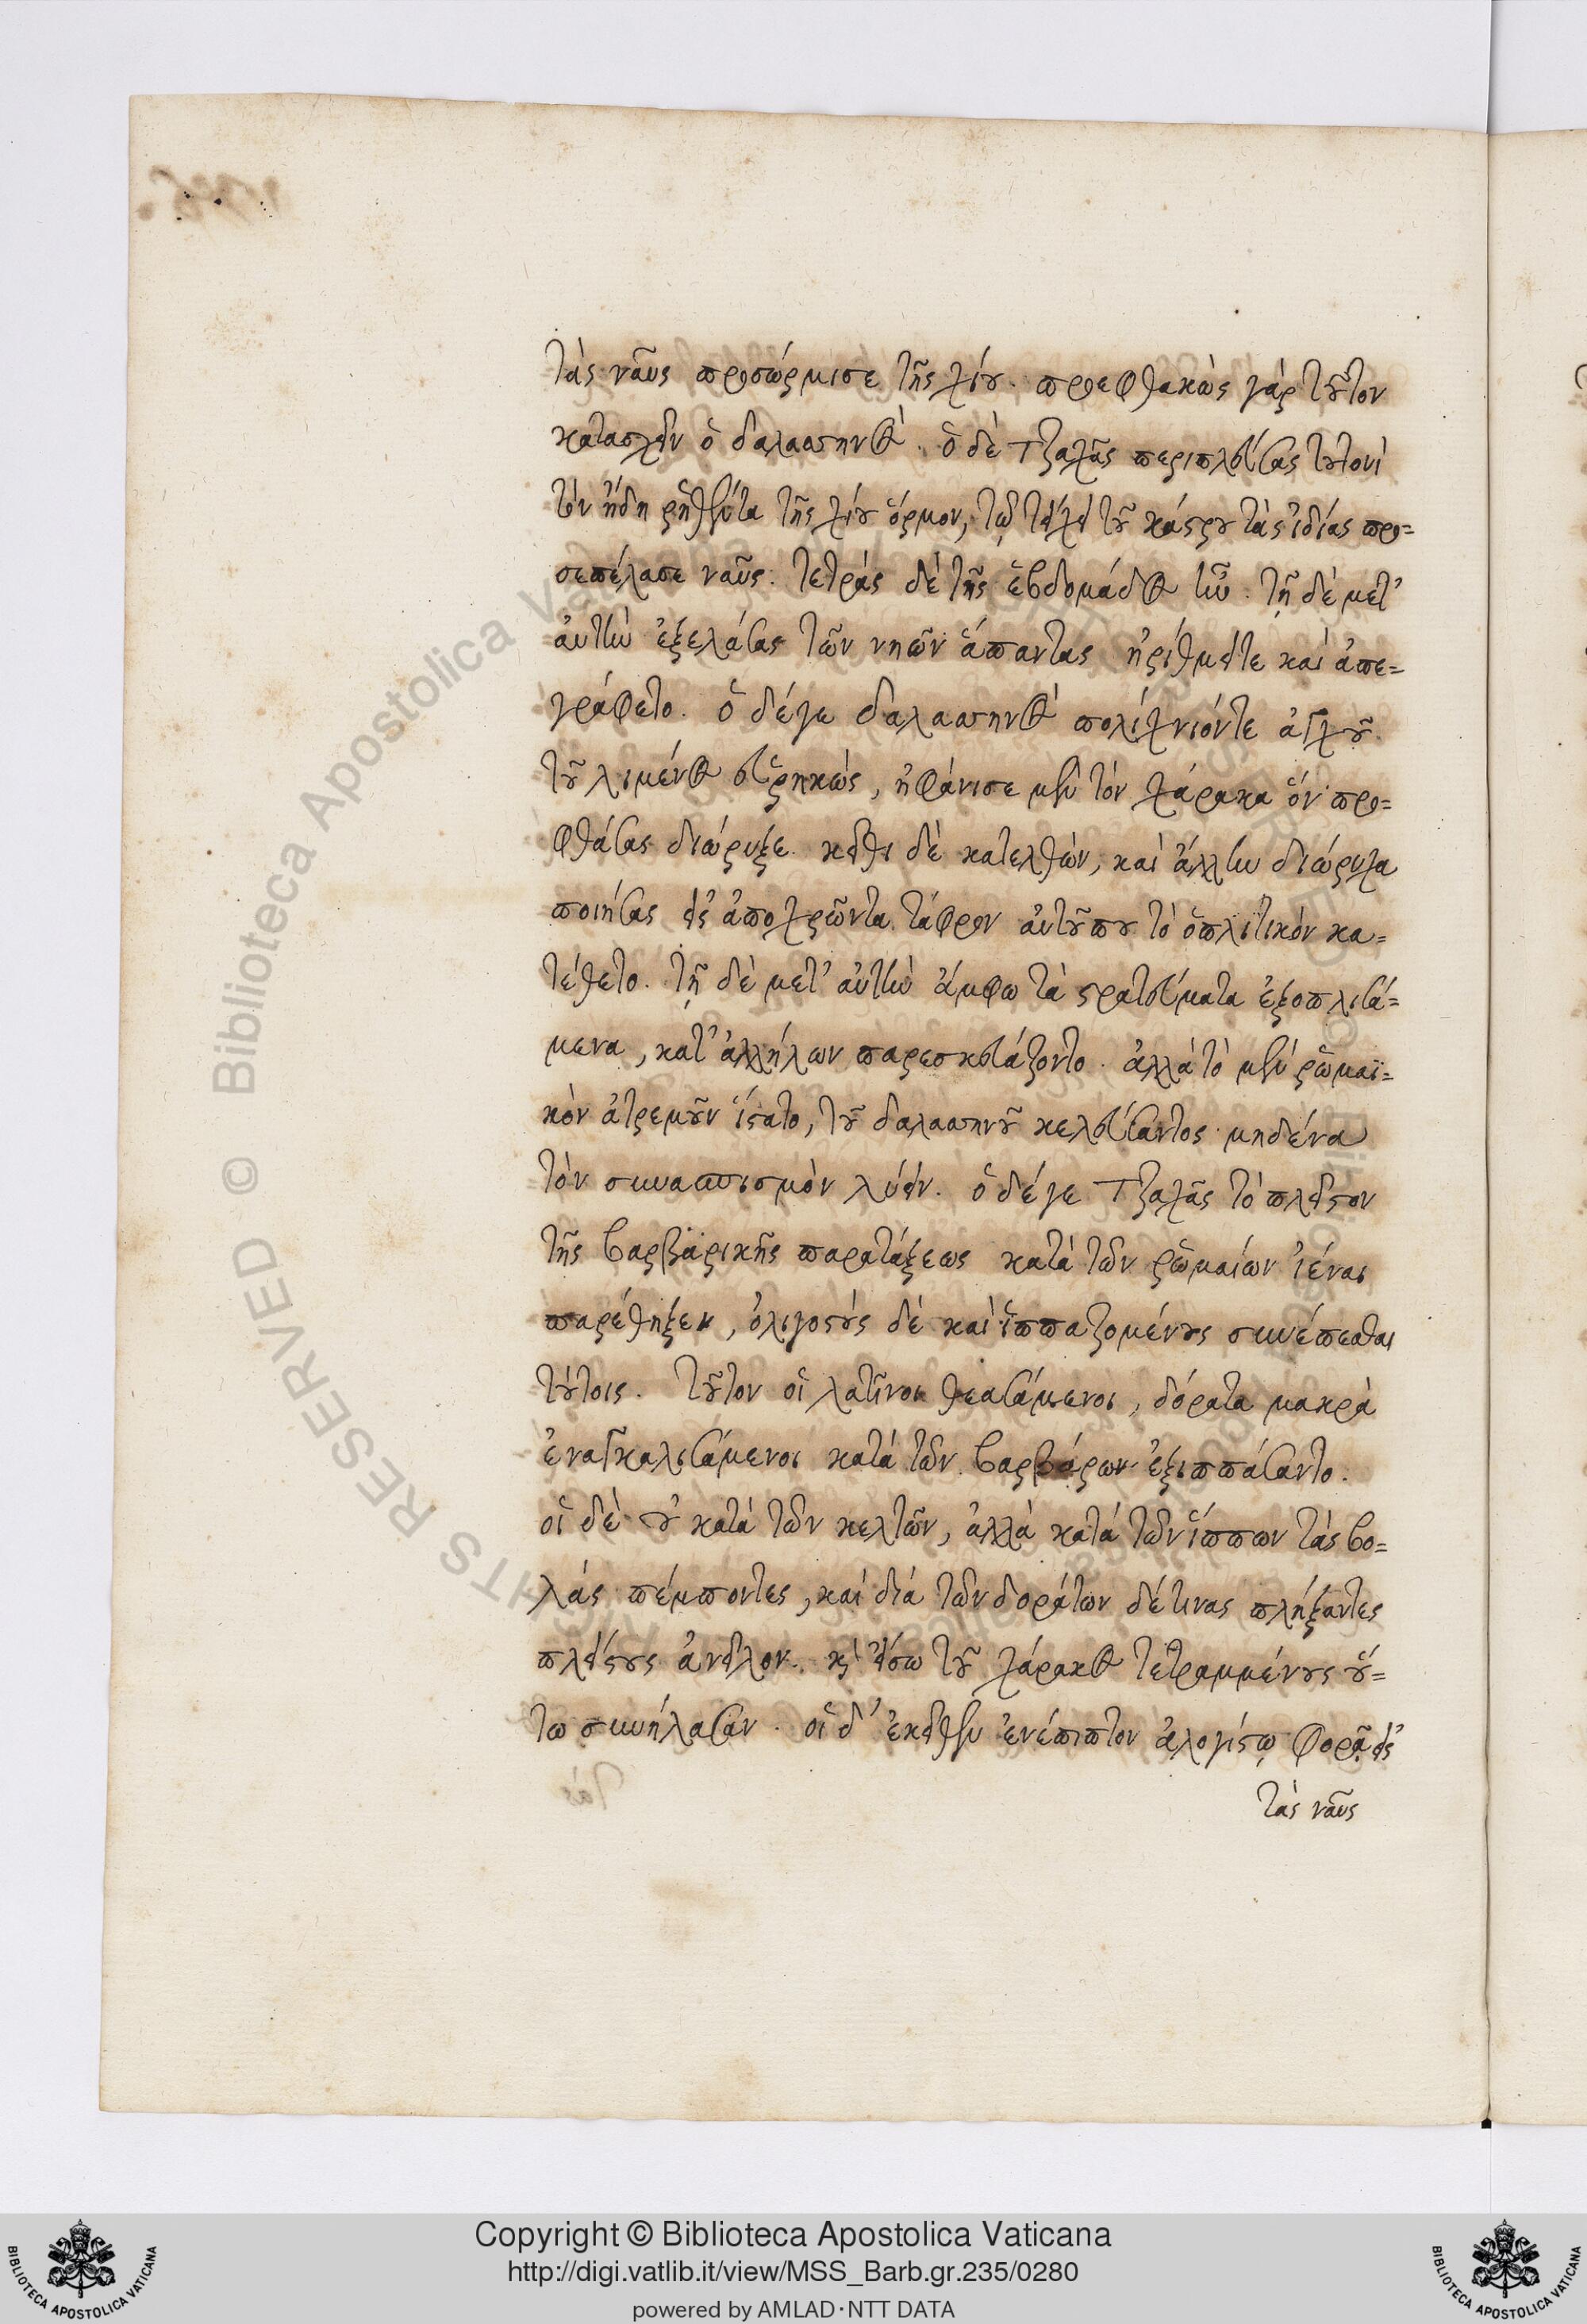 τὰς ναῦς προσώρμισε τῆς χίου. προεφθακὼς γὰρ τοῦτον
κατασχεῖν ὁ δαλασσηνός. ὁ δὲ Τζαχᾶς περιπλεύσας τουτονὶ
τὸν ἤδη ῥηθέντα τῆς χίου ὅρμον, τῷ τείχει τοῦ κάστρου τὰς ἰδίας προ=
σεπέλασε ναῦς. τετρὰς δὲ τῆς ἑβδομάδος ἦν. τῇ δὲ μετ'
αὐτὴν ἐξελάσας τῶν νηῶν ἅπαντας ἠρίθμει τε καὶ ἀπε=
γράφετο. ὁ δέ γε δαλασσηνὸς πολίχνιόν τε ἀγχοῦ
τοῦ λιμένος εὑρηκὼς, ἠφάνισε μὲν τὸν χάρακα ὃν προ=
φθάσας διώρυξε. κεῖθι δὲ κατελθὼν, καὶ ἄλλην διώρυχα
ποιήσας εἰς ἀποχρῶντα τάφρον αὐτοῦ που τὸ ὁπλιτικὸν κα=
τέθετο. τῇ δὲ μετ' αὐτὴν ἄμφω τὰ στρατεύματα ἐξοπλισά=
μενα, κατ' ἀλλήλων παρεσκευάζοντο. ἀλλὰ τὸ μὲν ῥωμαϊ=
κὸν ἀτρεμοῦν ἵστατο, τοῦ δαλασσηνοῦ κελεύσαντος μηδένα
τὸν συνασπισμὸν λύειν. ὁ δέ γε Τζαχᾶς τὸ πλεῖστον
τῆς βαρβαρικῆς παρατάξεως κατὰ τῶν ῥωμαίων ἰέναι
παρέθηξεν, ὀλιγοστοὺς δὲ καὶ ἱππαζομένους συνέπεσθαι
τούτοις. τοῦτον οἱ λατῖνοι θεασάμενοι, δόρατα μακρὰ
ἐναγκαλισάμενοι κατὰ τῶν βαρβάρων ἐξιππάσαντο.
οἱ δὲ οὐ κατὰ τῶν κελτῶν, ἀλλὰ κατὰ τῶν ἵππων τὰς βο=
λὰς πέμποντες, καὶ διὰ τῶν δοράτων δέ τινας πλήξαντες
πλείστους ἀνεῖλον. κ εἴσω τοῦ χάρακος τετραμμένους οὕ=
τω συνήλασαν. οἱ δ' ἐκεῖθεν ἐνέπιπτον ἀλογίστῳ φορᾷ εἰς
τὰς ναῦς
Copyright © Biblioteca Apostolica Vaticana
http://digi.vatlib.it/view/MSS_Barb.gr.235/0280
powered by AMLAD·NTT DATA